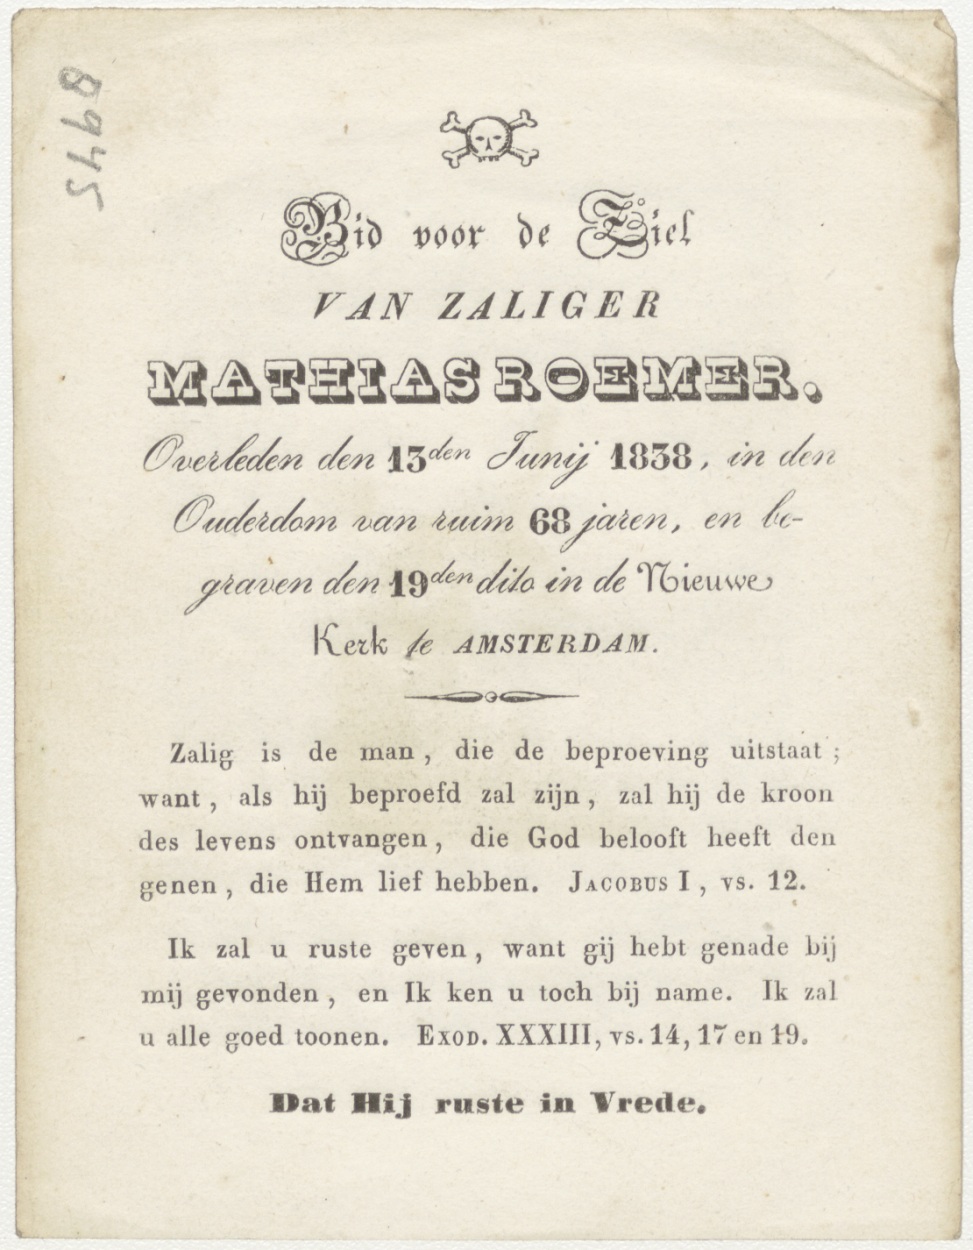 8945
Bid voor de Ziel
VAN ZALIGER
MATHIAS ROEMER.
Overleden den 13den Junij 1838, in den
Ouderdom van ruim 68 jaren, en be-
graven den 19den dito in de Nieuwe
Kerk te AMSTERDAM.
Zalig is de man, die de beproeving uitstaat;
want, als hij beproefd zal zijn, zal hij de kroon
des levens ontvangen, die God belooft heeft den
genen, die Hem lief hebben. JACOBUS I, vs. 12.
Ik zal u ruste geven, want gij hebt genade bij
mij gevonden, en Ik ken u toch bij name. Ik zal
u alle goed toonen. EXOD. XXXIII, vs. 14, 17 en 19.
Dat Hij ruste in Vrede.